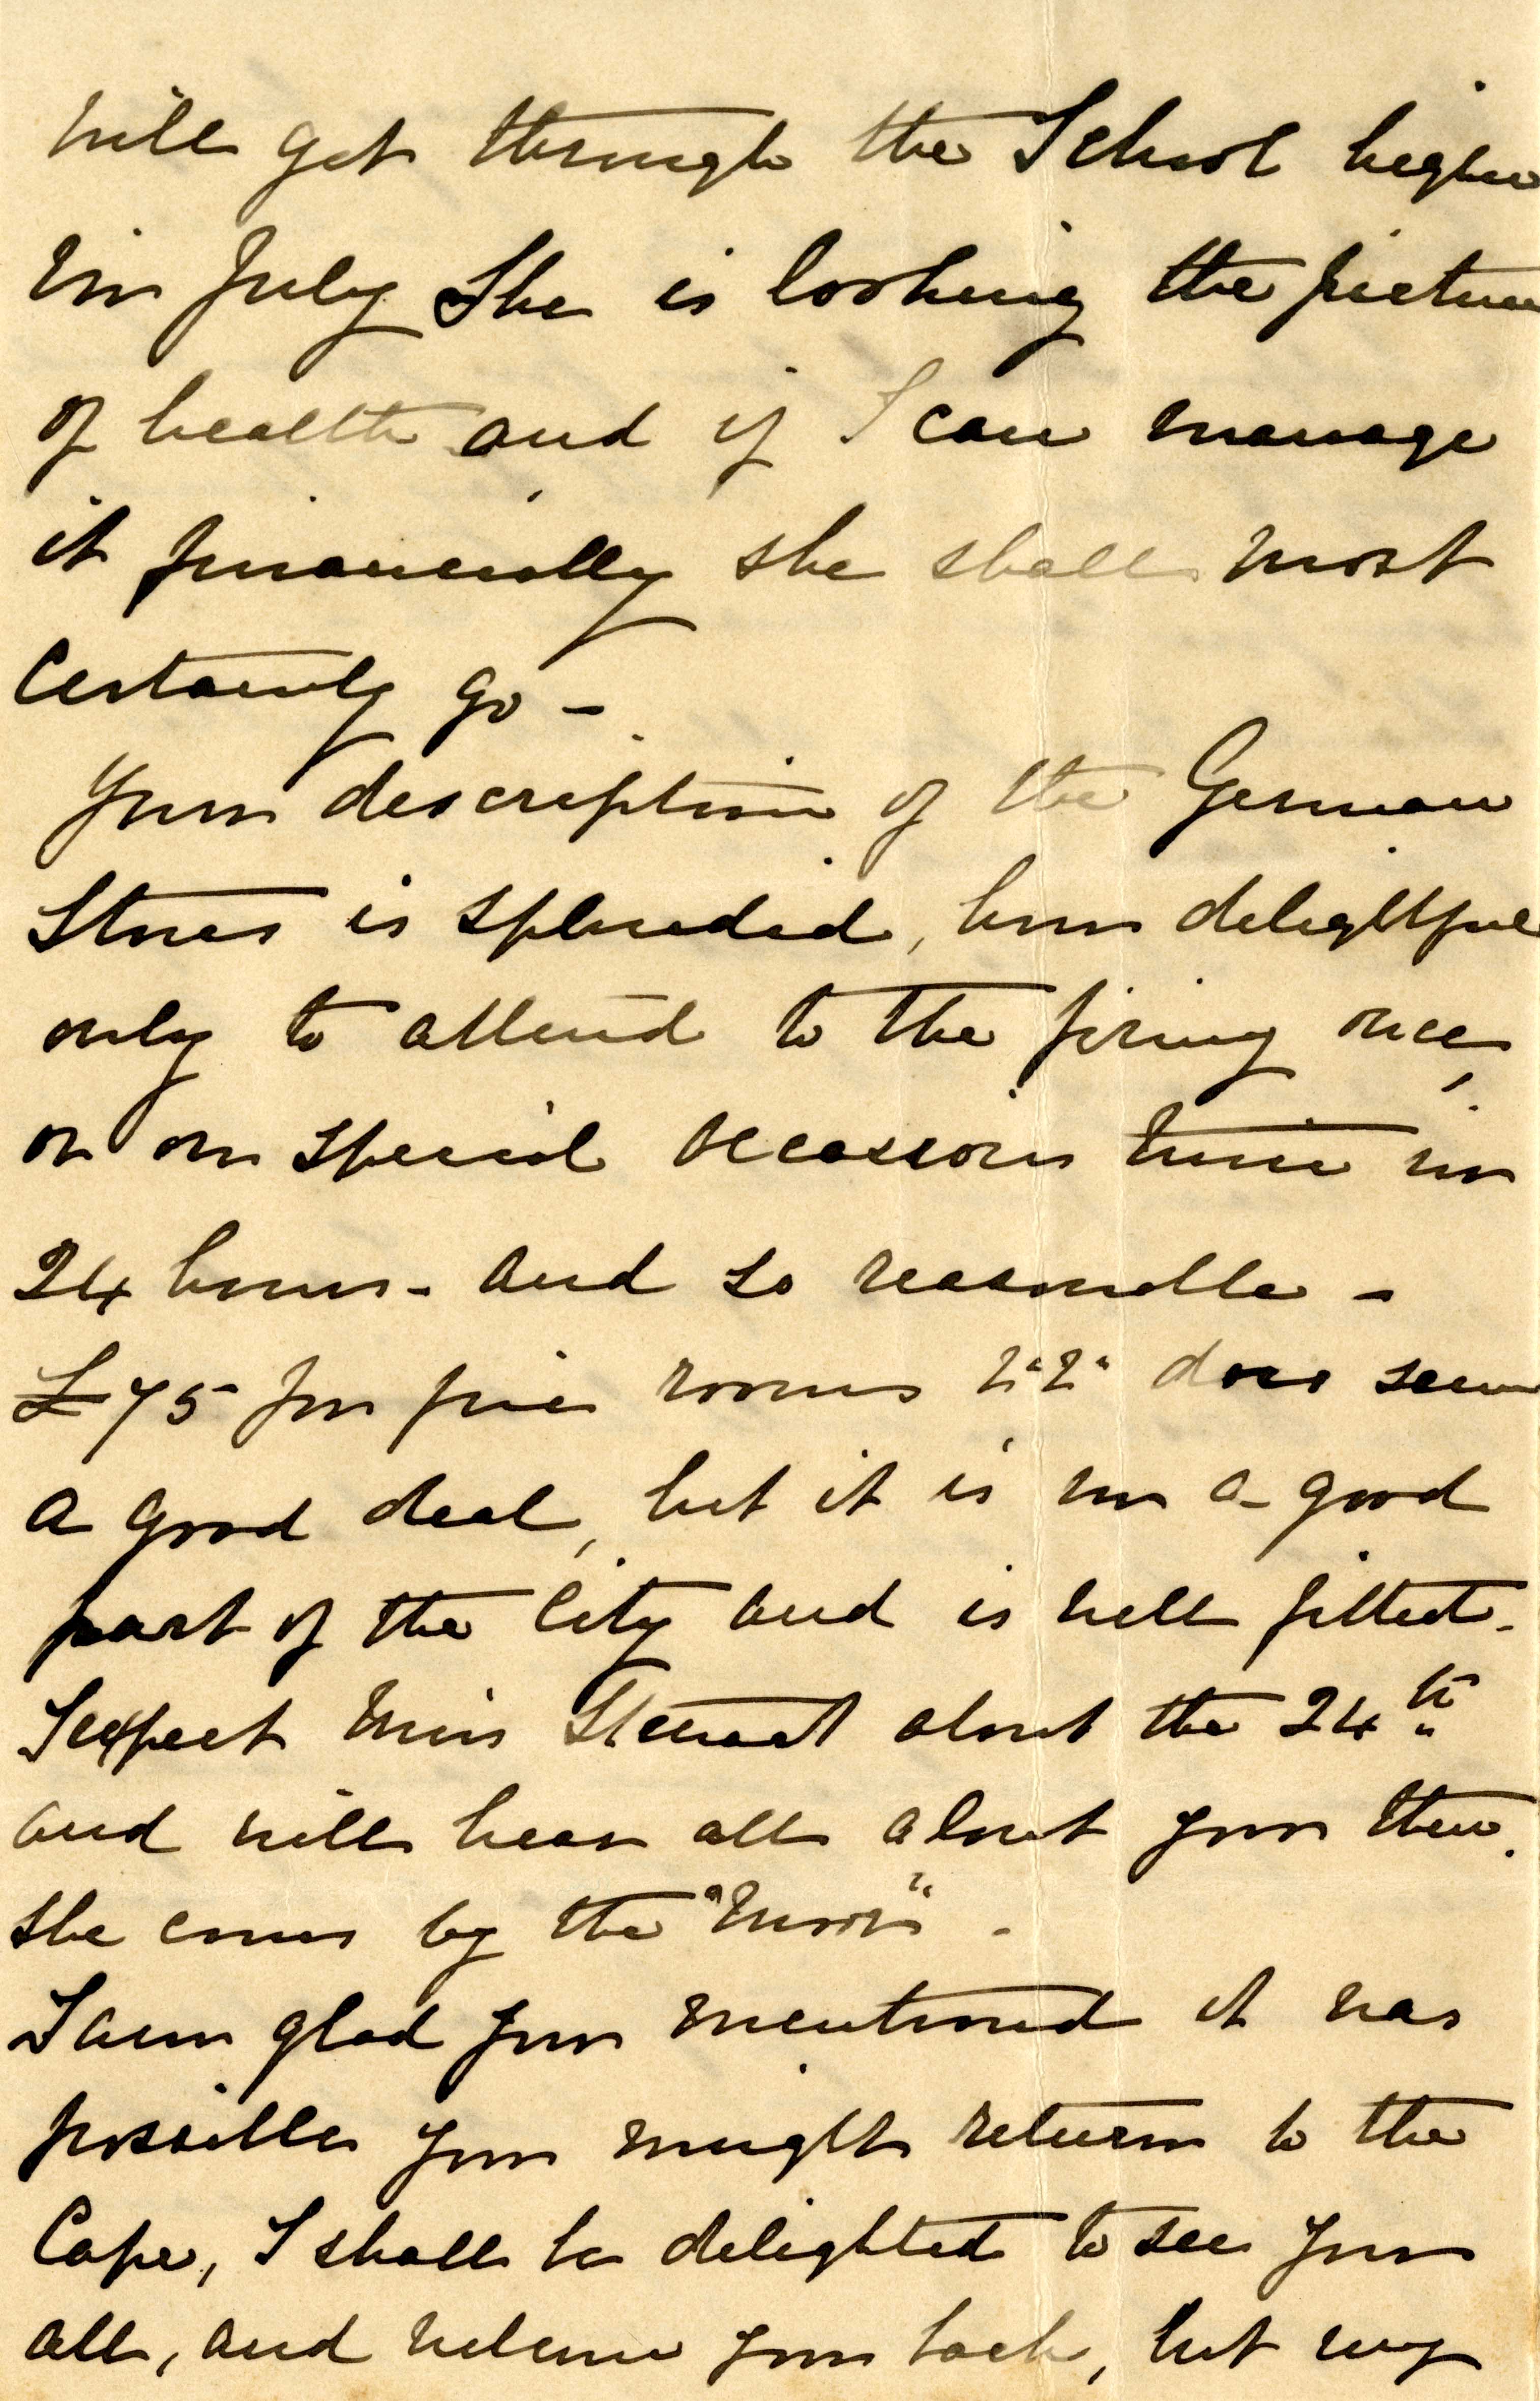 will get through the School higher
in July She is looking the picture
of health and if I can manage
it financially she shall most
certainly go –
Your description of the German
Stoves is splendid, how delightful
only to attend to the firing once,
or on special occassions twice in
24 hours – and so reasonable –
£75 for five rooms does seem
a good deal, but it is in a good
part of the City and is well fitted –
I expect Miss Stewart about the 24th
and will hear all about you then.
She comes by the "Moor" –
I am glad you mentioned it was
possible you might return to the
Cape, I shall be delighted to see you
all, and welcome you back, but my